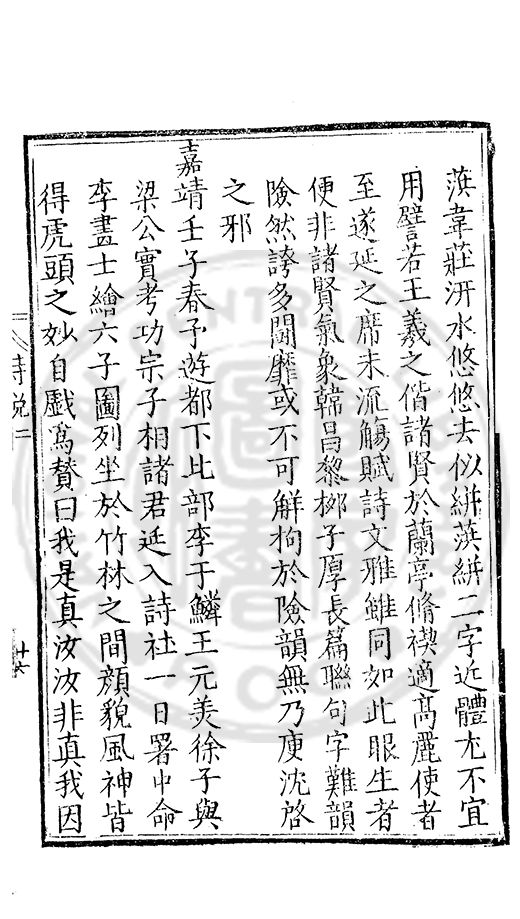 蓱韋莊汧水悠悠去似絣蓱絣二字近體尤不宜
用譬若王羲之偕諸賢於蘭亭脩禊適高麗使者
至遂延之席末流觴賦詩文雅雖同如此眼生者
便非諸賢氣象韓昌黎栁子厚長篇聯句字難韻
險然誇多鬬靡或不可解拘於險韻無乃庾沈啓
之邪
嘉靖壬子春予遊都下比部李于鱗王元美徐子與
梁公實考功宗子相諸君延入詩社一日署中命
李畫士繪六子圖列坐於竹林之間顔貌風神皆
得虎頭之妙自戲爲贊曰我是真汝汝非真我因
詩說二
十六